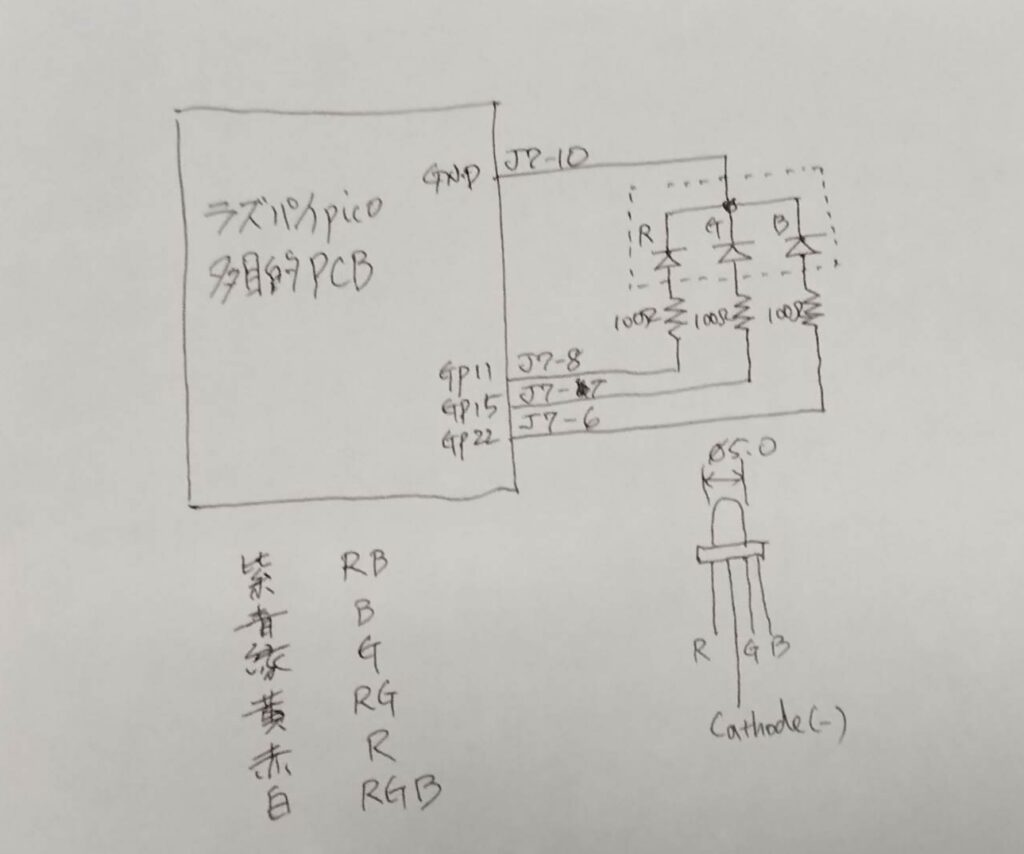 GND J7-10
ラズパイpico
多目的PCB
R G B
100Ω 100Ω 100Ω
GP11 J7-8
GP15 J7-7
GP22 J7-6
ø5.0
R G B
Cathode(-)
紫 RB
青 B
緑 G
黄 RG
赤 R
白 RGB